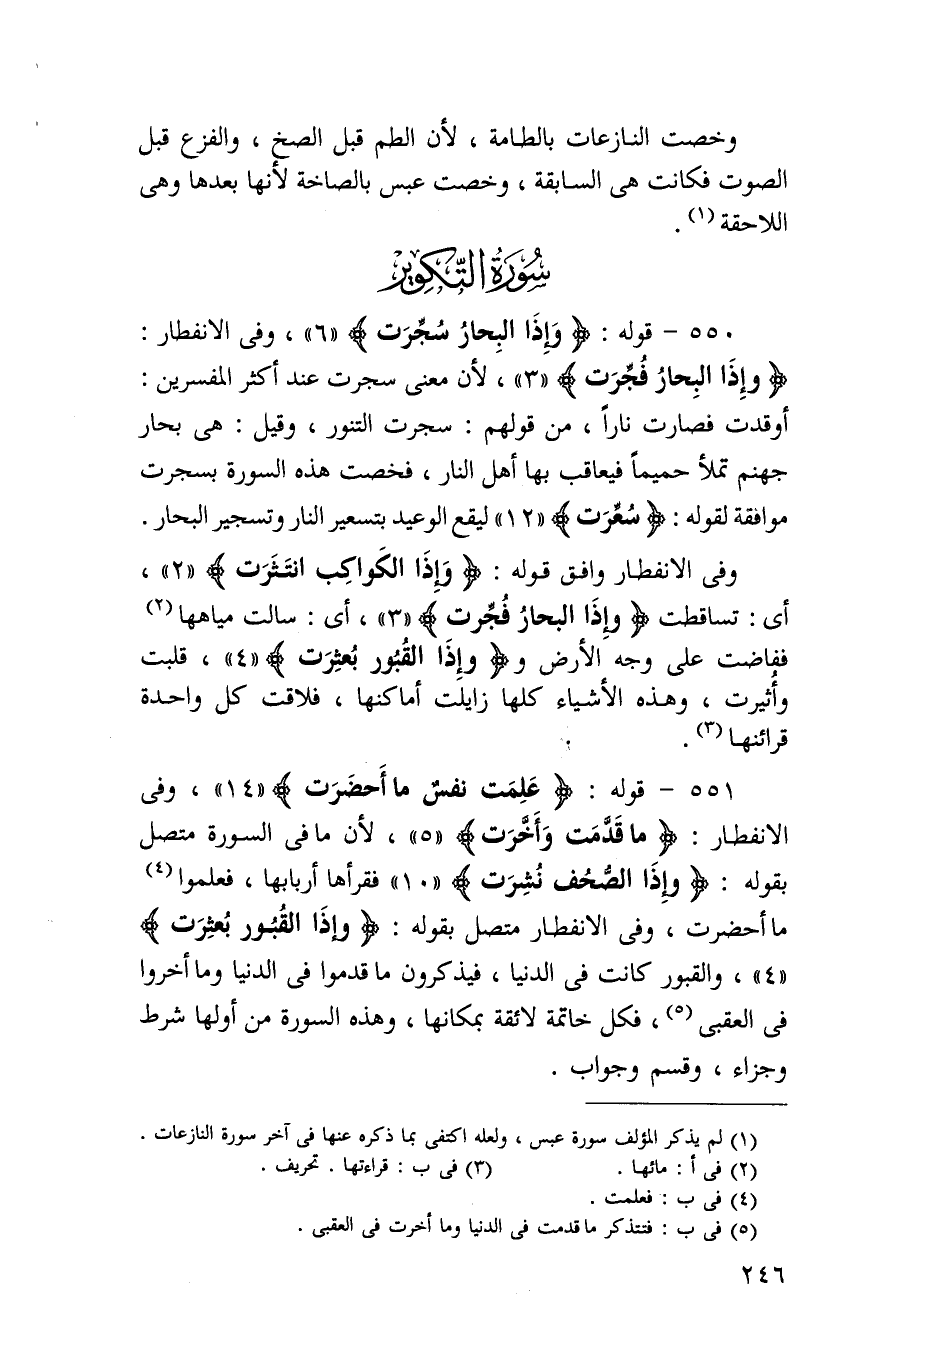 وخصت النازعات بالطامة ، لأن الطم قبل الصخ ، والفزع قبل
الصوت فكانت هى السابقة ، وخصت عبس بالصاخة لأنها بعدها وهى
اللاحقة (١) .
سُورَةُ التَّكْوِير
٥٥٠ - قوله : ﴿ وَإِذَا البِحارُ سُجِّرَت ﴾ «٦» ، وفى الانفطار :
﴿ وإِذَا البِحارُ فُجِّرَت ﴾ «٣» ، لأن معنى سجرت عند أكثر المفسرين :
أوقدت فصارت ناراً ، من قولهم : سجرت التنور ، وقيل : هى بحار
جهنم تملأ حميماً فيعاقب بها أهل النار ، فخصت هذه السورة بسجرت
موافقة لقوله : ﴿ سُعِّرَت ﴾ «١٢» ليقع الوعيد بتسعير النار وتسجير البحار .
وفى الانفطار وافق قوله : ﴿ وَإِذَا الكَواكِب انتَثَرَت ﴾ «٢» ،
أى : تساقطت ﴿ وإِذَا البحارُ فُجِّرت ﴾ «٣» ، أى : سالت مياهها (٢)
ففاضت على وجه الأرض و﴿ وإِذَا القُبُور بُعثِرَت ﴾ «٤» ، قلبت
وأُثيرت ، وهذه الأشياء كلها زايلت أماكنها ، فلاقت كل واحدة
قرائنها (٣) .
٥٥١ - قوله : ﴿ عَلِمَت نفسٌ ما أَحضَرَت ﴾ «١٤» ، وفى
الانفطار : ﴿ ما قَدَّمَت وَأَخَّرَت ﴾ «٥» ، لأن ما فى السورة متصل
بقوله : ﴿ وإِذَا الصُّحُف نُشِرَت ﴾ «١٠» فقرأها أربابها ، فعلموا (٤)
ما أحضرت ، وفى الانفطار متصل بقوله : ﴿ وإذَا القُبُور بُعثِرَت ﴾
«٤» ، والقبور كانت فى الدنيا ، فيذكرون ما قدموا فى الدنيا وما أخروا
فى العقبى (٥) ، فكل خاتمة لائقة بمكانها ، وهذه السورة من أولها شرط
وجزاء ، وقسم وجواب .
(١) لم يذكر المؤلف سورة عبس ، ولعله اكتفى بما ذكره عنها فى آخر سورة النازعات .
(٢) فى أ : مائها . (٣) فى ب : قراءتها . تحريف .
(٤) فى ب : فعلمت .
(٥) فى ب : فتتذكر ما قدمت فى الدنيا وما أخرت فى العقبى .
٢٤٦